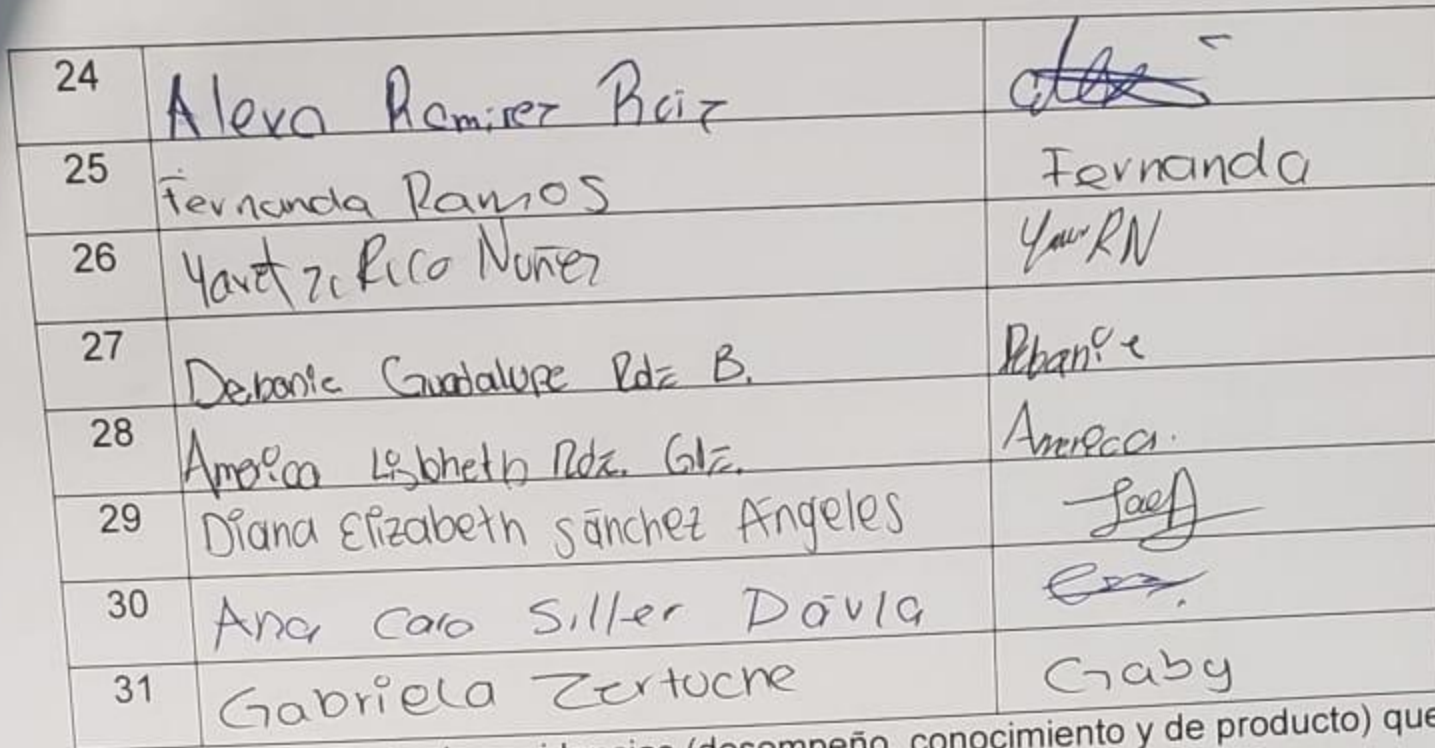 24 Alexa Ramirez Ruiz
25 Fernanda Ramos Fernanda
26 Yaretzi Rico Nuñez RN
27 Debanie Guadalupe Rdz B. Debanie
28 America Lisbheth Rdz. Glz. America.
29 Diana Elizabeth Sánchez Ángeles
30 Ana Caro Siller Dávila
31 Gabriela Zertuche Gaby
(desempeño, conocimiento y de producto) que